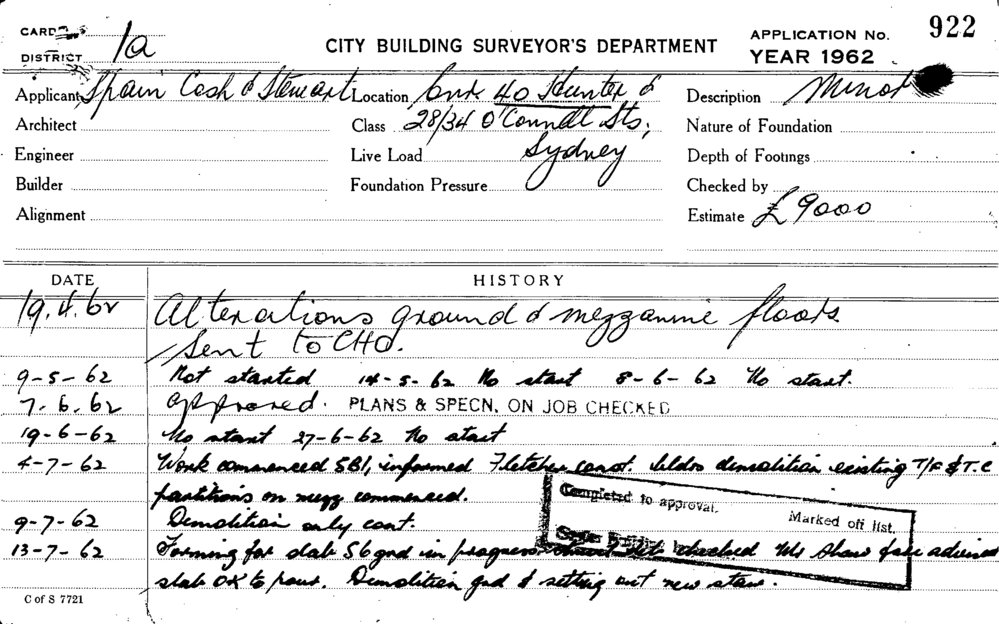 CARD
DISTRICT 1a
CITY BUILDING SURVEYOR'S DEPARTMENT
APPLICATION No. 922
YEAR 1962
Applicant Spain Cosh & Stewart Location Cnr 40 Hunter & Description Minor
Architect Class 28/34 O'Connell Sts, Nature of Foundation
Engineer Live Load Sydney Depth of Footings
Builder Foundation Pressure Checked by
Alignment Estimate £9000
DATE HISTORY
19.4.62 Alterations ground & mezzanine floors.
Sent to CHO.
9-5-62 Not started 14-5-62 No start 8-6-62 No start.
7.6.62 approved. PLANS & SPECN. ON JOB CHECKED
19-6-62 No start 27-6-62 No start
4-7-62 Work commenced SBI, informed Fletcher const. bldrs demolition existing T/F & T.C
partitions on mezz commenced.
Completed to approval. Marked off list.
9-7-62 Demolition only cont.
13-7-62 Forming for slab gnd in progress checked Mr Shaw advised
slab OK to pour. Demolition gnd & setting out new stairs.
C of S 7721